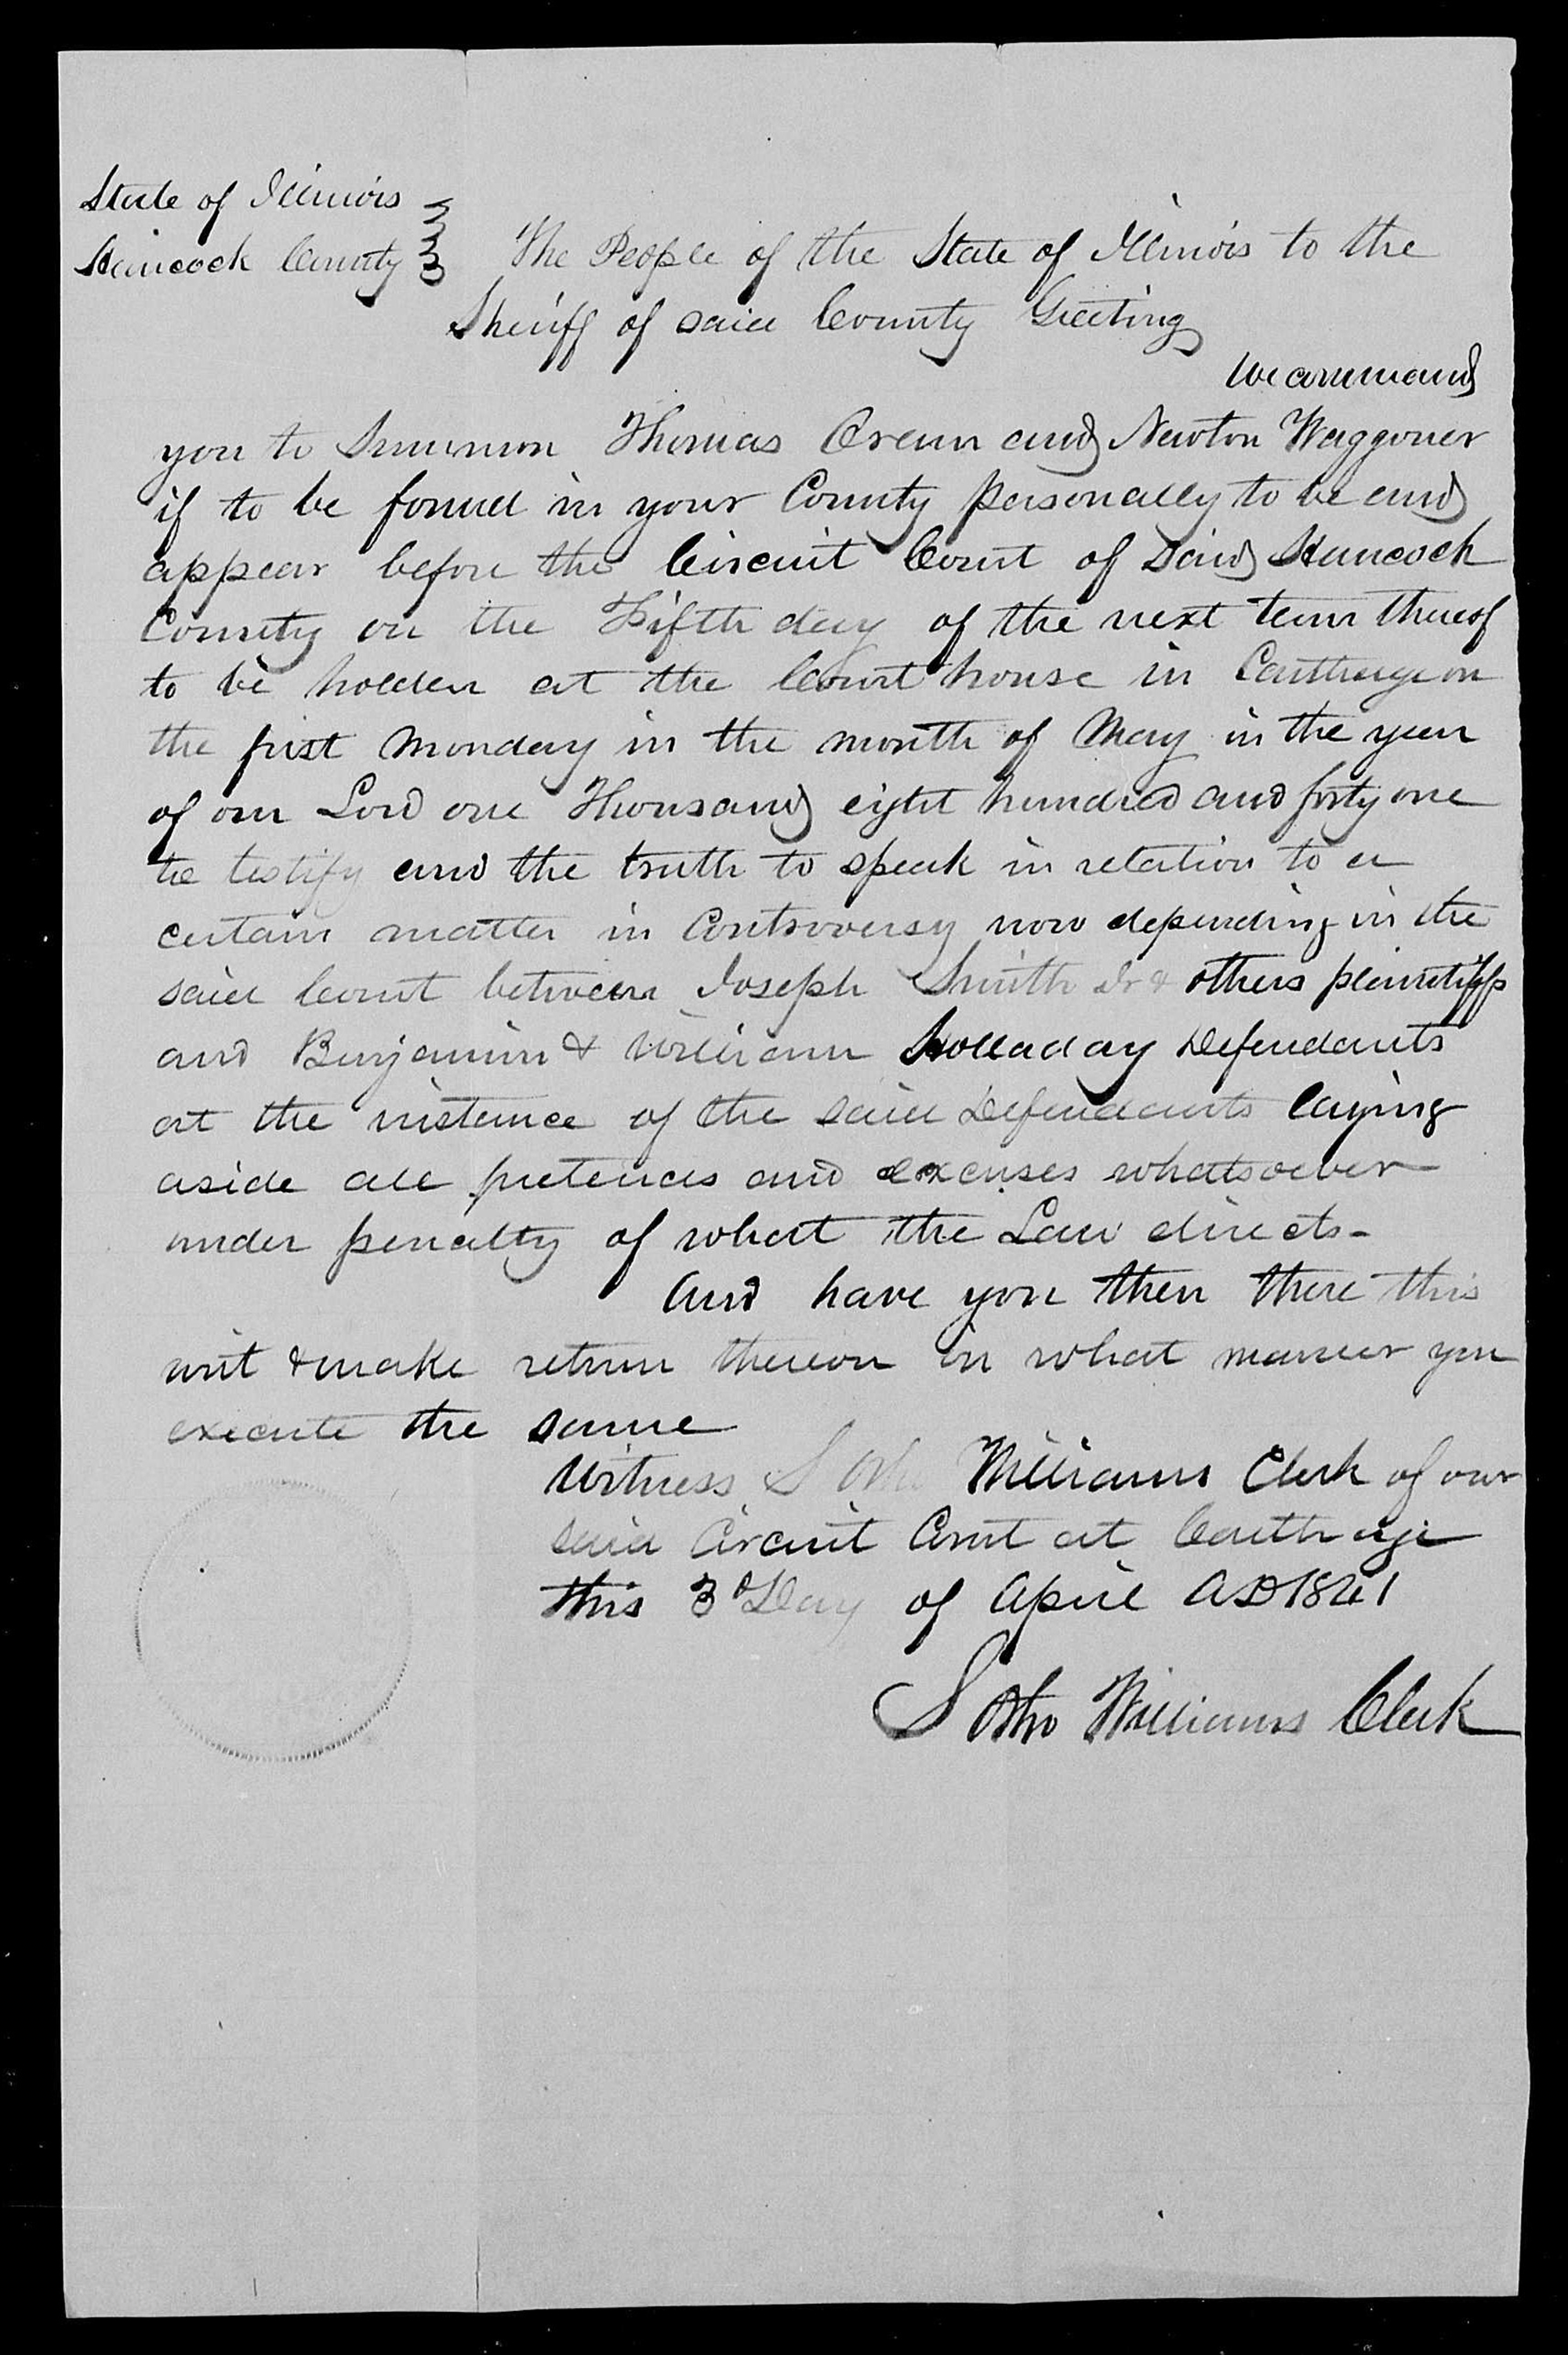 State of Illinois
Hancock County } The People of the State of Illinois to the
Sheriff of said County Greeting
We command
you to Summon Thomas Crenn and Newton Waggoner
if to be found in your County personally to be and
appear before the Circuit Court of Said Hancock
County on the Fifth day of the next term thereof
to be holden at the Court house in Carthage on
the first Monday in the month of May in the year
of our Lord one Thousand eight hundred and forty one
to testify and the truth to speak in relation to a
certain matter in Controversy now depending in the
said Court between Joseph Smith Jr & others plaintiffs
and Benjamin & William Holladay Defendants
at the instance of the said Defendants laying
aside all pretences and excuses whatsoever
under penalty of what the Law directs-
And have you then there this
writ & make return thereon in what manner you
execute the same
Witness S Otho Williams Clerk of our
said Circuit Court at Carthage
this 3d Day of April AD 1841
S Otho Williams Clerk